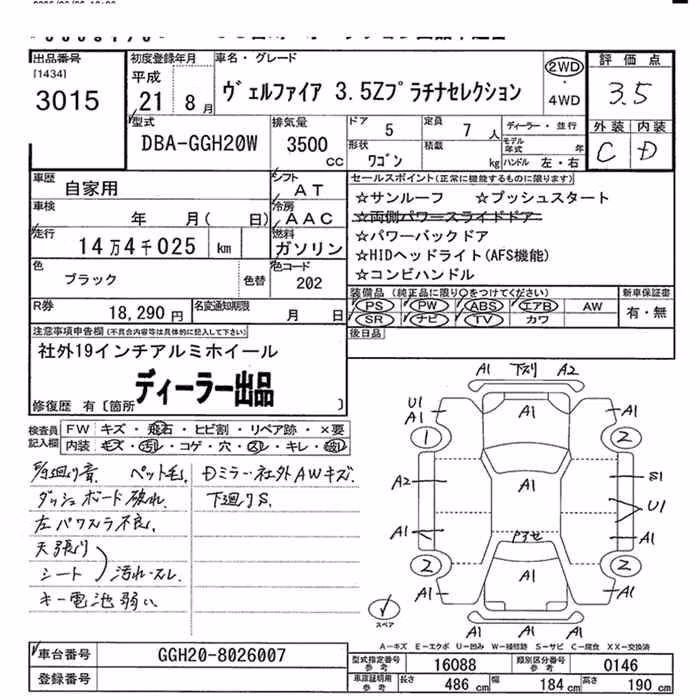 出品番号
[1434]
3015
初度登録年月
平成
21 8月
車名・グレード
ヴェルファイア 3.5Zプラチナセレクション
2WD
4WD
評価点
3.5
外装 内装
C D
型式
DBA-GGH20W
排気量
3500
cc
ドア 5
定員 7 人
形状 ワゴン
積載 kg
ディーラー・並行
モデル年式 年
ハンドル 左・右
車歴 自家用
シフト AT
車検 年 月( 日)
冷房 AAC
走行 14万4千025 km
燃料 ガソリン
色 ブラック 色替
色コード 202
R券 18,290円
名変通知期限 月 日
セールスポイント(正常に機能するものに限ります)
☆サンルーフ ☆プッシュスタート
☆両側パワースライドドア
☆パワーバックドア
☆HIDヘッドライト(AFS機能)
☆コンビハンドル
装備品(純正品に限り○をつけてください)
PS PW ABS エアB AW
SR ナビ TV カワ
新車保証書
有・無
後日品
注意事項申告欄(不具合内容等は具体的に記入して下さい)
社外19インチアルミホイール
ディーラー出品
修復歴 有 [箇所 ]
検査員記入欄
FW キズ・飛石・ヒビ割・リペア跡・×要
内装 キズ・汚れ・コゲ・穴・スレ・キレ・破レ
ペット毛 Dミラー・社外AWキズ.
ダッシュボード破れ 下廻りS.
左パワスラ不良.
天張り
シート 汚れ・スレ.
キー電池弱い
A1 下スリ A2
U1 A1 A1 A1
1 2
A1
A2 A1 S1
U1
A1 A1
A1
2 2
A1 A1 A1
スペア
A-キズ E-エクボ U-凹み W-補修跡 S-サビ C-腐食 XX-交換済
車台番号 GGH20-8026007
登録番号
型式指定番号 参考 16088
類別区分番号 参考 0146
車庫証明用 参考 長さ 486cm 幅 184cm 高さ 190cm